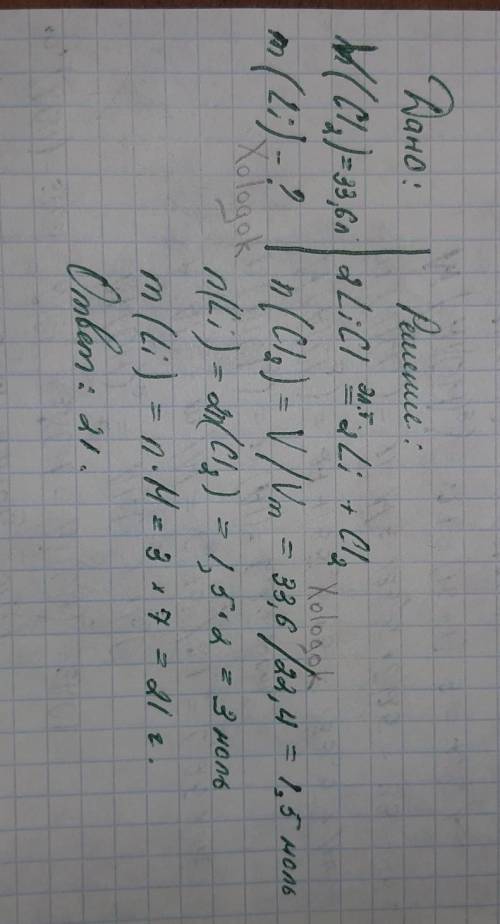 Дано:
V(Cl2)=33,6л
m(Li)-?
Решение:
2LiCl эл.т = 2Li + Cl2
n(Cl2) = V/Vm = 33,6/22,4 = 1,5 моль
n(Li) = 2n(Cl2) = 1,5·2 = 3 моль
m(Li) = n·M = 3*7 = 21 г.
Ответ: 21.
Xologok
Xologok